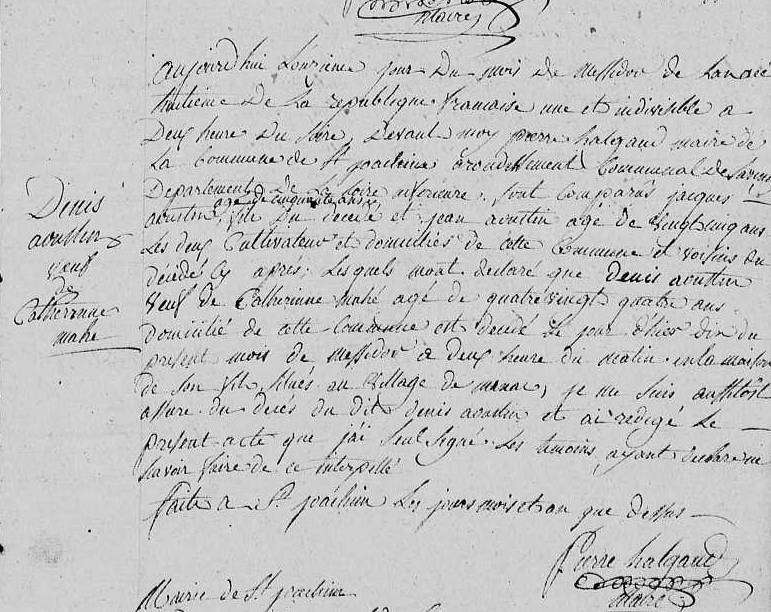 Maire
aujourdhui Lonzieme jour Du mois de Messidor de Lannée
huitieme De La republique francaise une et indivisible a
Deux heure Du Soire, Devant moy pierre halgand maire de
La Commune de St joachime arondissement Communal de Savenay
Departement de la Loire inferieure. Sont Comparûs jacques
agé de cinquante ans
aoustin, fils du decedé et jean aoustin agé de vingt cinq ans
Les deux Cultivateur et domiciliés de cette Commune et voisins du
décédé Cy apres. Les quels mont declaré que denis aoustin
Veuf de Catherinne mahé agé de quatre vingt quatre ans
domicilié de cette Commune est decedé Le jour d'hier dix du
present mois de Messidor a deux heure du matin en la maison
de Son fils, Situés au village de manac, je me Suis aussitôst
assure du decés du dit denis aoustin et ai redigé Le
present acte que j'ai Seul Signé. Les temoins ayant declare ne
Savoir faire de ce interpellé
faite a St joachim Les jours mois et an que dessus
Denis
aoustin
veuf
de
Catherinne
mahe
Pierre halgand
Maire
Mairie de St joachim